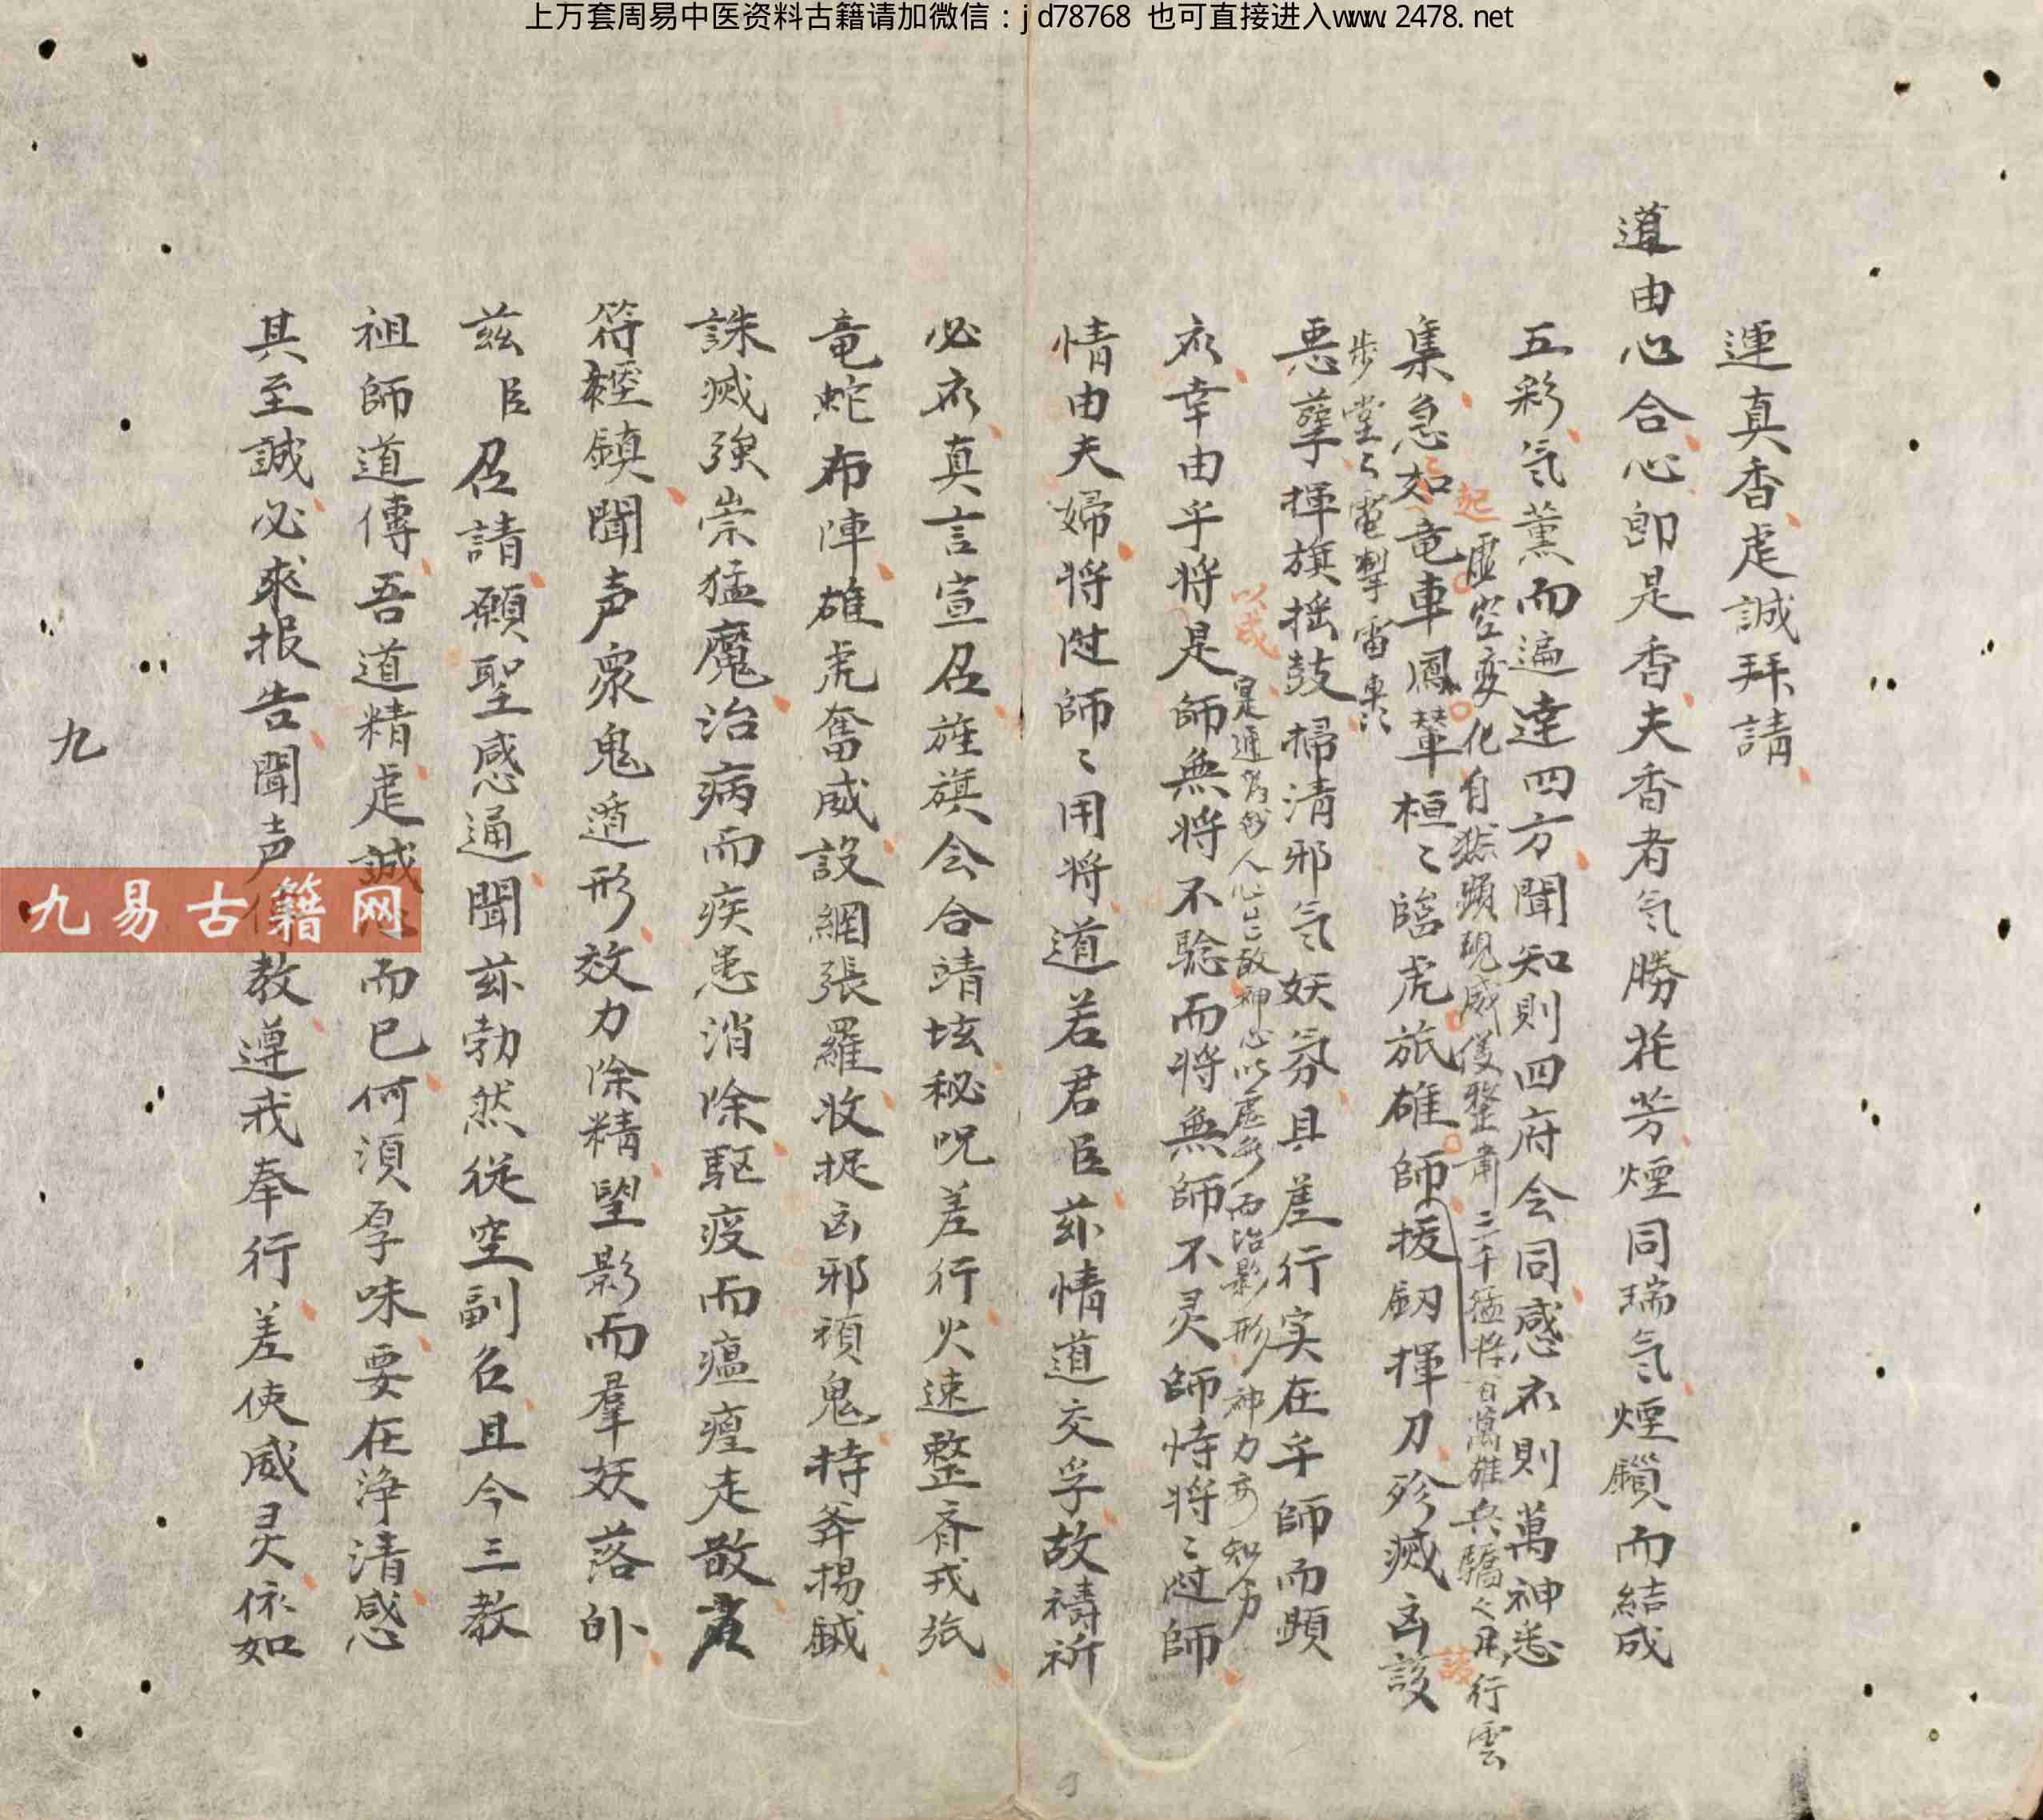 上万套周易中医资料古籍请加微信：jd78768 也可直接进入www.2478.net
運真香虔誠拜請
道由心合心即是香夫香者氣勝花芳煙同瑞氣煙鎖而結成
五彩氣薰而遍達四方聞知則四府会同感衣則萬神悉
起虛空变化自然顕現威儀整肅三千猛将百萬雄兵驕々鬼行雲
集急如竜車鳳輦桓〻臨虎旅雄師援劔揮刀殄滅凶設
步堂〻電掣雷車
惡孽揮旗搖鼓掃清邪氣妖氛具差行实在乎師而顕
以或是通為妙人心故神心以虛無而治影形神力
衣幸由乎将是師無将不驗而将無師不灵師恃将〻過師
情由夫婦将過師〻用将道若君臣茲情道交孚故禱祈
必衣真言宣召旌旗会合靖坛秘呪差行火速整齊戎旅
竜蛇布陣雄虎奮威設網張羅收捉凶邪禎鬼持斧揚鉞
誅滅強崇猛魔治病而疾患消除駆疫而瘟瘟走散
符輕鎮聞声衆鬼遁形效力除精望影而羣妖落
茲臣召請願聖感通聞茲勃然從空副召且今三教
祖師道傳吾道精虔誠而已何須厚味要在淨清感
其至誠必來报告聞声教遵戒奉行差使威灵依如
九
九易古籍网